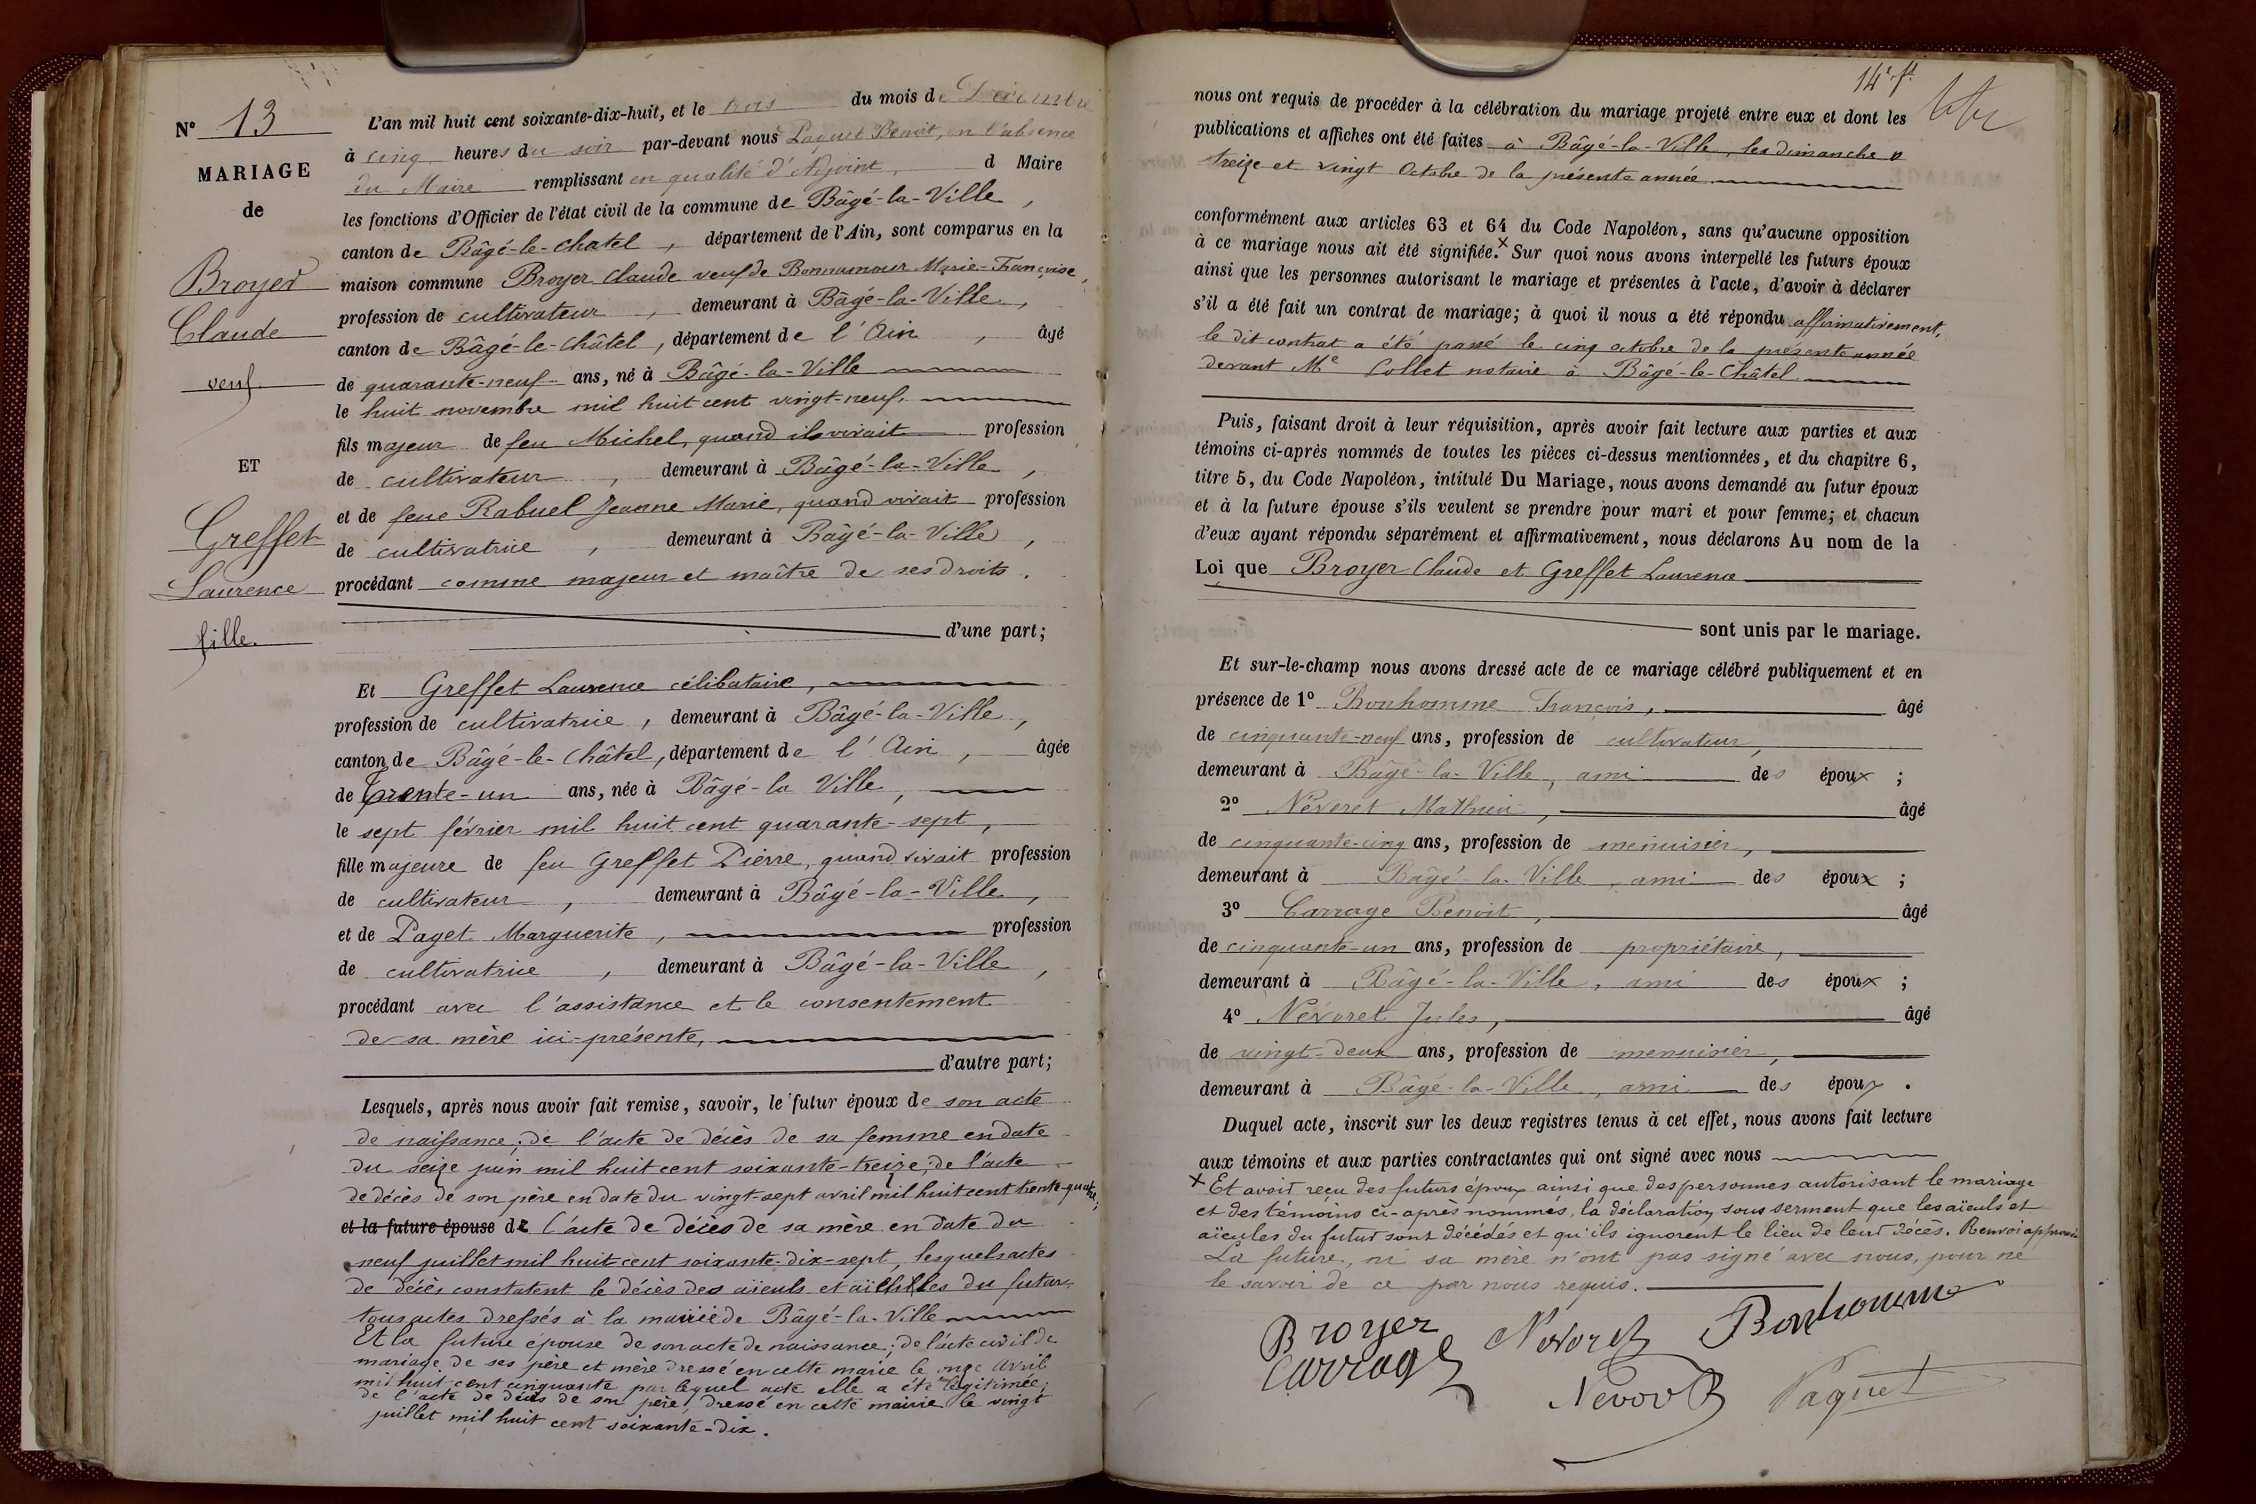 N° 13
MARIAGE
de
Broyer
Claude
veuf
ET
Greffet
Laurence
fille.
L'an mil huit cent soixante-dix-huit, et le trois du mois de Décembre
à cinq heures du soir par-devant nous Paquet Benoit, en l'absence
du Maire remplissant en qualité d'Adjoint, d Maire
les fonctions d'Officier de l'état civil de la commune de Bâgé-la-Ville,
canton de Bâgé-le-Chatel, département de l'Ain, sont comparus en la
maison commune Broyer Claude veuf de Bonnamour Marie-Françoise,
profession de cultivateur, demeurant à Bâgé-la-Ville,
canton de Bâgé-le-Châtel, département de l'Ain, âgé
de quarante-neuf ans, né à Bâgé-la-Ville
le huit novembre mil huit cent vingt-neuf.
fils majeur de feu Michel, quand il vivait profession
de cultivateur, demeurant à Bâgé-la-Ville,
et de feue Rabuel Jeanne Marie, quand vivait profession
de cultivatrice, demeurant à Bâgé-la-Ville,
procédant comme majeur et maître de ses droits.
d'une part;
Et Greffet Laurence célibataire,
profession de cultivatrice, demeurant à Bâgé-la-Ville,
canton de Bâgé-le-Châtel, département de l'Ain, âgée
de Trente-un ans, née à Bâgé-la Ville,
le sept février mil huit cent quarante-sept,
fille majeure de feu Greffet Pierre, quand vivait profession
de cultivateur, demeurant à Bâgé-la-Ville,
et de Paget Marguerite, profession
de cultivatrice, demeurant à Bâgé-la-Ville,
procédant avec l'assistance et le consentement
de sa mère ici présente,
d'autre part;
Lesquels, après nous avoir fait remise, savoir, le futur époux de son acte
de naissance; de l'acte de décès de sa femme en date
du seize juin mil huit cent soixante-treize; de l'acte
de décès de son père en date du vingt-sept avril mil huit cent trente-quatre;
et la future épouse de l'acte de décès de sa mère en date du
neuf juillet mil huit cent soixante-dix-sept, lesquels actes
de décès constatent le décès des aïeuls et aïeules du futur,
tous actes dressés à la mairie de Bâgé-la-Ville
Et la future épouse de son acte de naissance; de l'acte civil de
mariage de ses père et mère dressé en cette mairie le onze Avril
mil huit cent cinquante par lequel acte elle a été légitimée;
de l'acte de décès de son père, dressé en cette mairie le vingt
juillet mil huit cent soixante-dix.
14e ft
nous ont requis de procéder à la célébration du mariage projeté entre eux et dont les
publications et affiches ont été faites à Bâgé-la-Ville, les dimanche
treize et vingt Octobre de la présente année.
conformément aux articles 63 et 64 du Code Napoléon, sans qu'aucune opposition
à ce mariage nous ait été signifiée.x Sur quoi nous avons interpellé les futurs époux
ainsi que les personnes autorisant le mariage et présentes à l'acte, d'avoir à déclarer
s'il a été fait un contrat de mariage; à quoi il nous a été répondu affirmativement,
le dit contrat a été passé le cinq octobre de la présente année
devant Me Collet notaire à Bâgé-le-Châtel.
Puis, faisant droit à leur réquisition, après avoir fait lecture aux parties et aux
témoins ci-après nommés de toutes les pièces ci-dessus mentionnées, et du chapitre 6,
titre 5, du Code Napoléon, intitulé Du Mariage, nous avons demandé au futur époux
et à la future épouse s'ils veulent se prendre pour mari et pour femme; et chacun
d'eux ayant répondu séparément et affirmativement, nous déclarons Au nom de la
Loi que Broyer Claude et Greffet Laurence
sont unis par le mariage.
Et sur-le-champ nous avons dressé acte de ce mariage célébré publiquement et en
présence de 1° Bonhomme François, âgé
de cinquante-neuf ans, profession de cultivateur,
demeurant à Bâgé-la-Ville, ami des époux;
2° Névoret Mathieu, âgé
de cinquante-cinq ans, profession de menuisier,
demeurant à Bâgé-la-Ville, ami des époux;
3° Carrage Benoit, âgé
de cinquante-un ans, profession de propriétaire,
demeurant à Bâgé-la-Ville, ami des époux;
4° Névoret Jules, âgé
de vingt-deux ans, profession de menuisier,
demeurant à Bâgé-la-Ville, ami des époux.
Duquel acte, inscrit sur les deux registres tenus à cet effet, nous avons fait lecture
aux témoins et aux parties contractantes qui ont signé avec nous
x Et avoir reçu des futurs époux ainsi que des personnes autorisant le mariage
et des témoins ci-après nommés, la déclaration sous serment que les aïeuls et
aïeules du futur sont décédés et qu'ils ignorent le lieu de leur décès. Renvoi approuvé
La future, ni sa mère n'ont pas signé avec nous, pour ne
le savoir de ce par nous requis.
Broyer Névoret Bonhomme
Carrage Nevoret Paquet